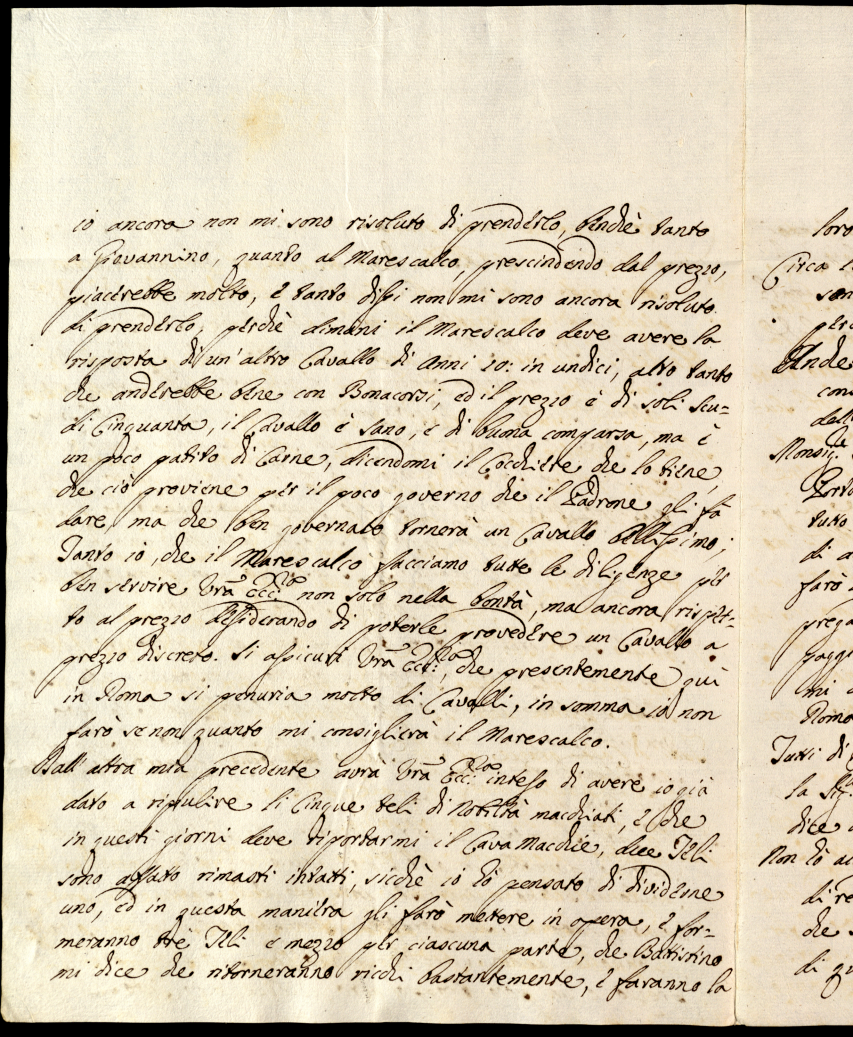 io ancora non mi sono risoluto di prenderlo, benchè tanto
a Giovannino, quanto al Marescalco, prescindendo dal prezzo,
piacerebbe molto, e tanto dissi non mi sono ancora risoluto
di prenderlo, perchè dimani il Marescalco deve avere la
risposta di un'altro Cavallo di Anni 10: in undici, altro tanto
che anderebbe bene con Bonacorsi, ed il prezzo è di soli scu=
di Cinquanta, il Cavallo è sano, e di buona comparsa, ma è
un poco patito di Carne, dicendomi il Cocchiere che lo tiene,
che ciò proviene per il poco governo che il Padrone gli fà
dare, ma che ben governato tornerà un Cavallo bellissimo;
Tanto io, che il Marescalco facciamo tutte le diligenze per
ben servire Vrã Eccza non solo nella bontà, ma ancora rispet=
to al prezzo desiderando di poterle provedere un Cavallo a
prezzo discreto. Si assicuri Vrã Eccza, che presentemente quì
in Roma si penuria molto di Cavalli, in somma io non
farò se non quanto mi consiglierà il Marescalco.
Dall'altra mia precedente avrà Vrã Eccza inteso di avere io già
dato a ripulire li Cinque teli di Nobiltà macchiati, e che
in questi giorni deve riportarmi il Cava Macchie, due Teli
sono affatto rimasti intatti, sicchè io hò pensato di dividerne
uno, ed in questa maniera gli farò mettere in opera, e for=
meranno trè Teli e mezzo per ciascuna parte, che Battistino
mi dice che ritorneranno ricchi bastantemente, e faranno la
loro
Circa
Monsig.
tutto
di a
farò
mi
Roma
Tutti di
dice
Non hò
di
che
di